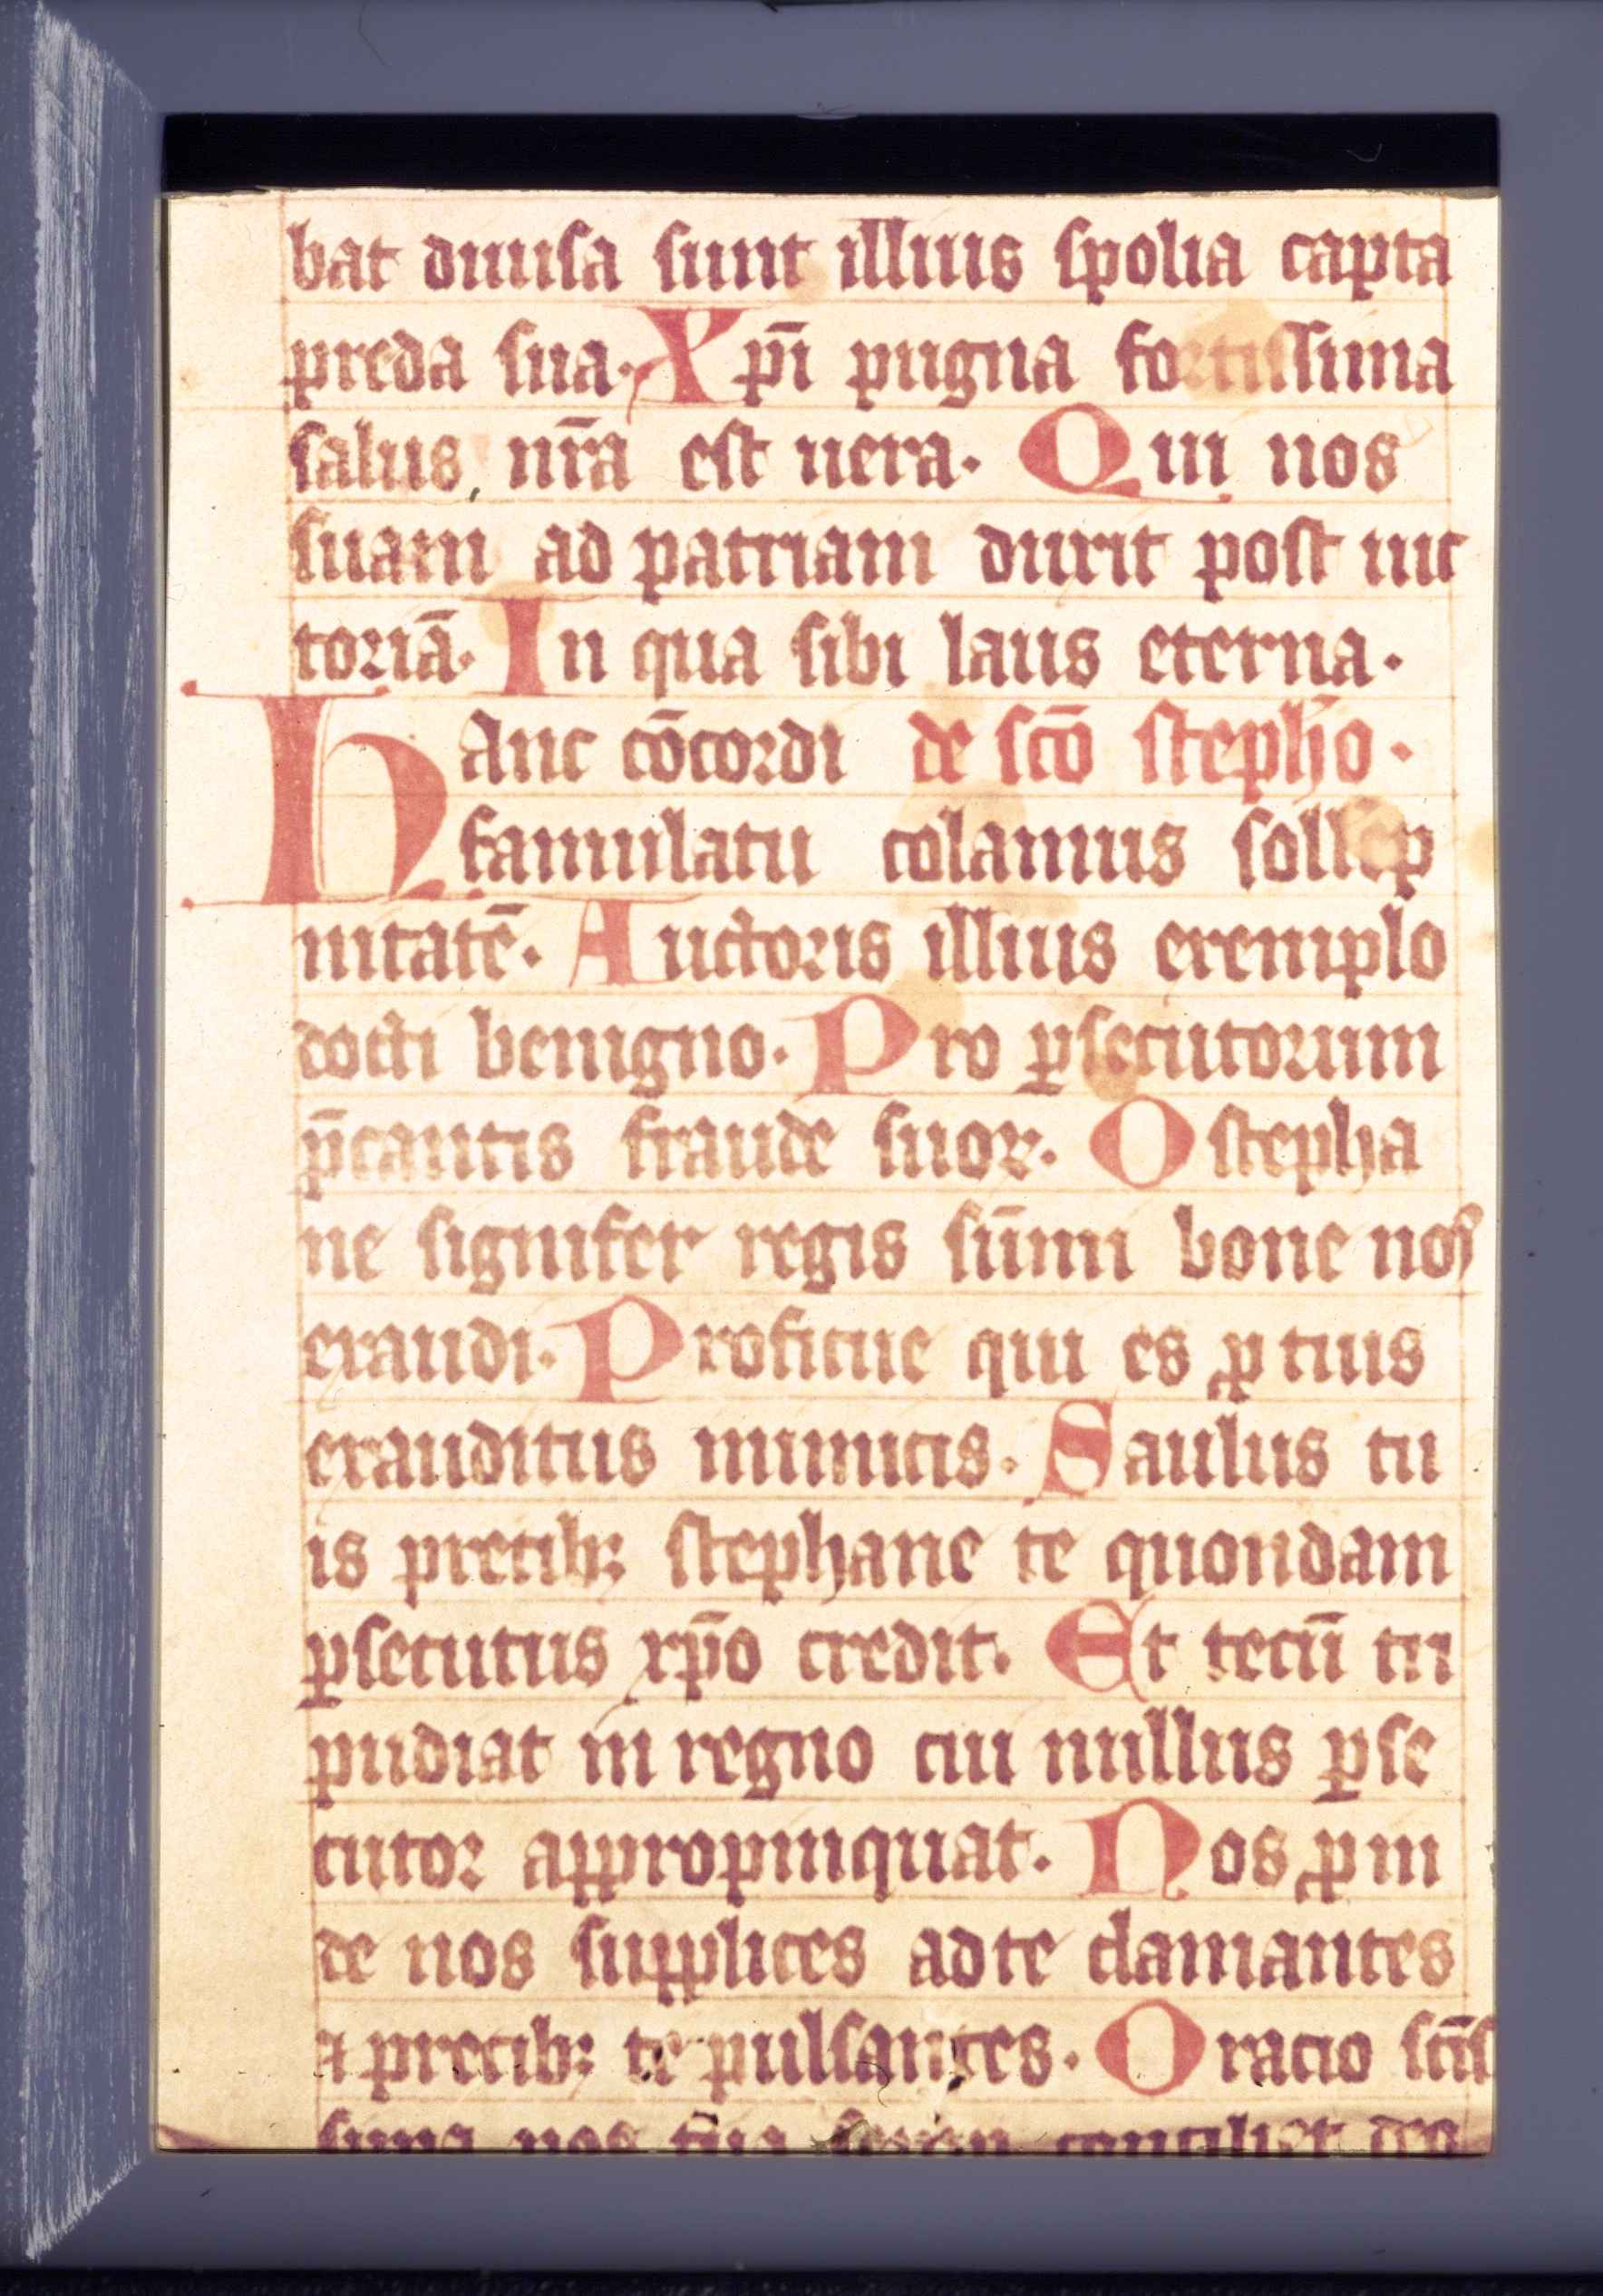 bat diuisa sunt illius spolia capta
preda sua. Xpī pugna fortissima
salus nr̄a est uera. Qui nos
suam ad patriam duxit post uic
toriā. In qua sibi laus eterna.
Hanc cōcordi de scō stephō.
famulatu colamus sollēp
nitatē. Auctoris illius exemplo
docti benigno. Pro ꝑsecutorum
p̄cantis fraude suoꝝ. O stepha
ne signifer regis sūmi bone nos
exaudi. Proficue qui es ꝓ tuis
exauditus inimicis. Saulus tu
is precibꝫ stephane te quondam
ꝑsecutus xp̄o credit. Et tecū tri
pudiat in regno cui nullus ꝑse
cutor appropinquat. Nos ꝓin
de nos supplices ad te clamantes
a precibꝫ te pulsantes. Oracio scīs
sima nos tua semꝑ conciliet deo